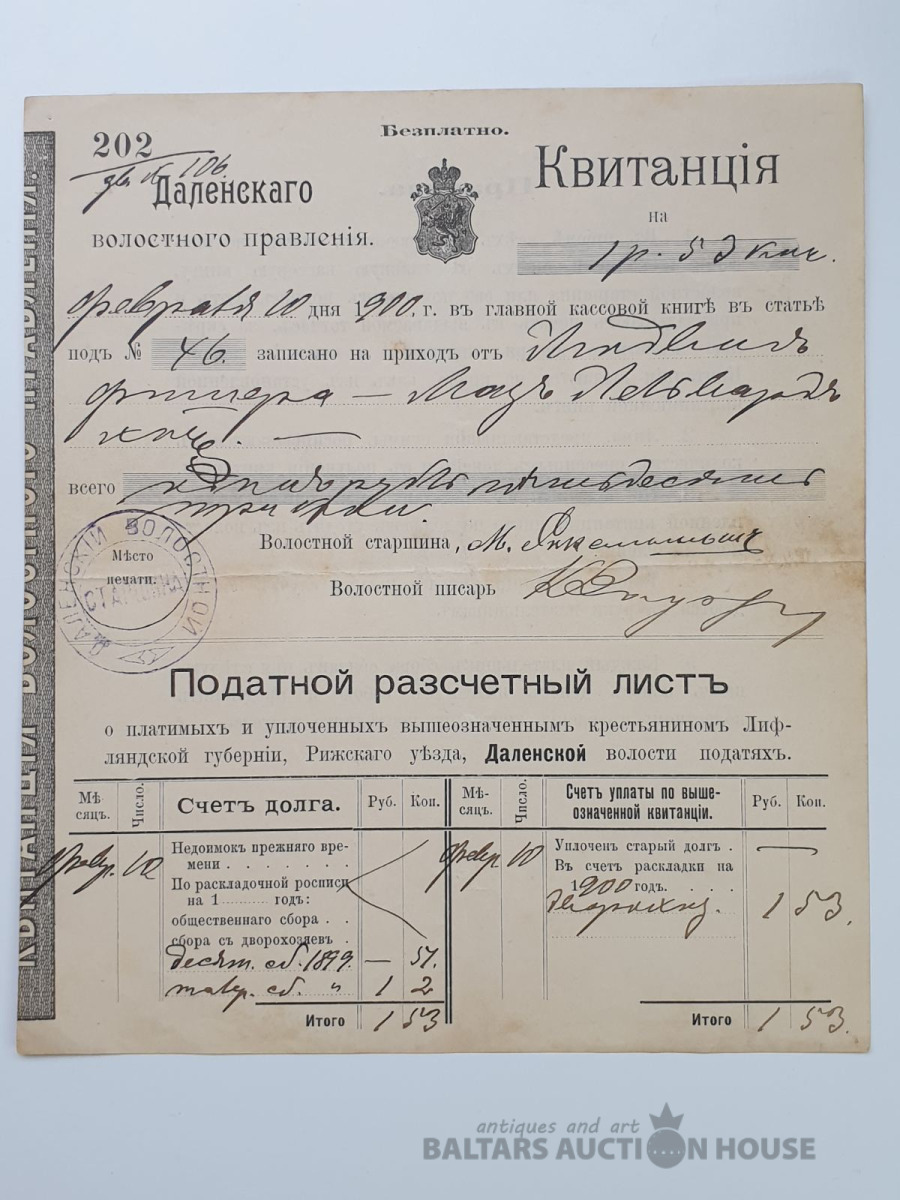 Безплатно.
202
№ 106.
Даленскаго
волостного правленія.
Квитанція
на
1 р. 53 коп.
Февраля 10 дня 1900. г. въ главной кассовой книгѣ въ статьѣ
подъ № 46. записано на приходъ отъ
всего рубль пятьдесятъ
три коп.
Волостной старшина, М.
Волостной писарь
ДАЛЕНСКІЙ ВОЛОСТНОЙ СТАРШИНА
Мѣсто
печати.
КВИТАНЦІЯ ВОЛОСТНОГО ПРАВЛЕНІЯ.
Податной разсчетный листъ
о платимыхъ и уплоченныхъ вышеозначеннымъ крестьяниномъ Лиф-
ляндской губерніи, Рижскаго уѣзда, Даленской волости податяхъ.
Мѣ-
сяцъ.
Число.
Счетъ долга.
Руб. Коп.
Февр. 10
Недоимокъ прежняго вре-
мени . . . . . . .
По раскладочной росписи
на 1......... годъ:
общественнаго сбора . .
сбора съ дворохозяевъ .
десят. сб. 1899. — 51.
сб. " 1 2
Итого 1 53
Мѣ-
сяцъ.
Число.
Счетъ уплаты по выше-
означенной квитанціи.
Руб. Коп.
Февр 10
Уплоченъ старый долгъ . —
Въ счетъ раскладки на
1900 годъ. . . . .
1 53.
Итого 1 53.
antiques and art
BALTARS AUCTION HOUSE